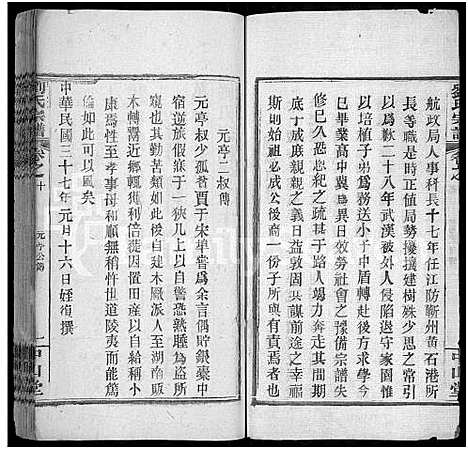 劉氏宗譜
卷之
航政局人事科長十七年任江防蘄州黃石港所
長等職當時正值局勢擾攘建樹殊少思之常引
以為咎二十八年武漢被外人侵陷退守家園株
守桑植
為務送小子中盾轉赴後方求學今
已畢業高中冀為異日效勞社會之預備宗譜失
修愈久愈紀之疏甚于路人竭力奔走其間一切
困難在所不辭惟
日夜謀前途之幸福
斯則始祖之成公後裔一份子所與有責焉者也
中山堂
元亭二叔傳
元亭叔少孤苦賈于宋埠嘗為余言偶貯銀橐中
宿逆旅假寐于一狹几上以自警恐熟睡為盜所
窺也其勤苦多如此後自建木厰派人至湖南販
木轉鬻近鄉三十餘年獲利倍蓰因置田產以小
康焉性至孝事母和順無稍忤世道陵夷而能篤
倫如此可以風矣
中華民國三十七年元月十六日姪復撰
劉氏宗譜
卷之十
元亭公傳
一中山堂